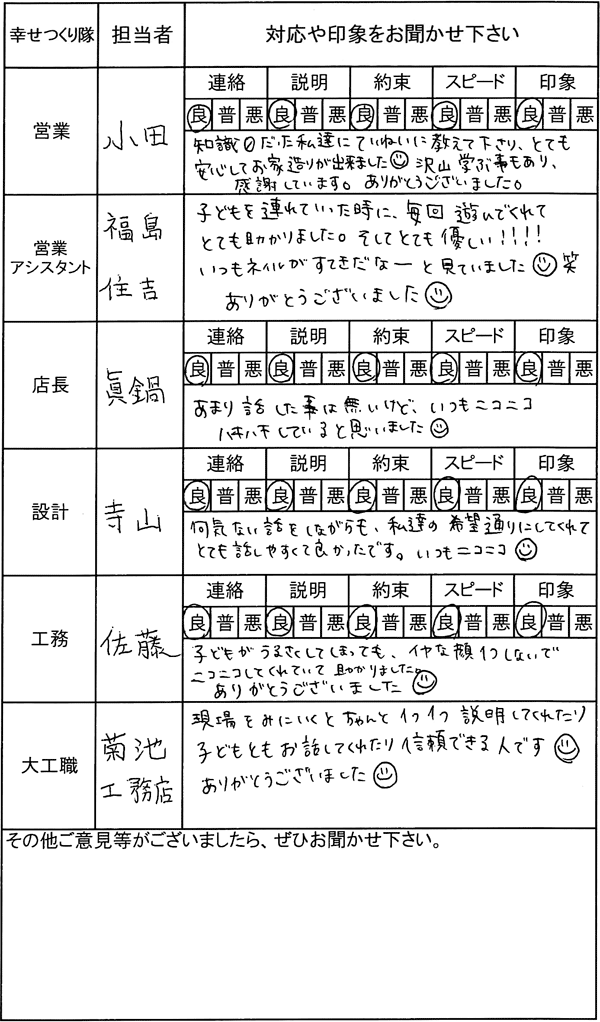 幸せつくり隊 担当者 対応や印象をお聞かせ下さい
連絡 説明 約束 スピード 印象
良 普 悪 良 普 悪 良 普 悪 良 普 悪 良 普 悪
営業 小田
知識0だった私達にていねいに教えて下さり、とても
安心してお家造りが出来ました☺ 沢山学ぶ事もあり、
感謝しています。ありがとうございました。
営業
アシスタント
福島
住吉
子どもを連れていった時に、毎回遊んでくれて
とても助かりました。そしてとても優しい!!!!
いつもネイルがすてきだなーと見ていました☺笑
ありがとうございました☺
連絡 説明 約束 スピード 印象
良 普 悪 良 普 悪 良 普 悪 良 普 悪 良 普 悪
店長 眞鍋
あまり話した事は無いけど、いつもニコニコ
ハキハキしていると思いました☺
連絡 説明 約束 スピード 印象
良 普 悪 良 普 悪 良 普 悪 良 普 悪 良 普 悪
設計 寺山
何気ない話をしながらも、私達の希望通りにしてくれて
とても話しやすくて良かったです。いつもニコニコ☺
連絡 説明 約束 スピード 印象
良 普 悪 良 普 悪 良 普 悪 良 普 悪 良 普 悪
工務 佐藤
子どもがうるさくしてしまっても、イヤな顔1つしないで
ニコニコしてくれていて助かりました。
ありがとうございました☺
大工職
菊池
工務店
現場をみにいくとちゃんと1つ1つ説明してくれたり
子どもともお話してくれたり信頼できる人です☺
ありがとうございました☺
その他ご意見等がございましたら、ぜひお聞かせ下さい。